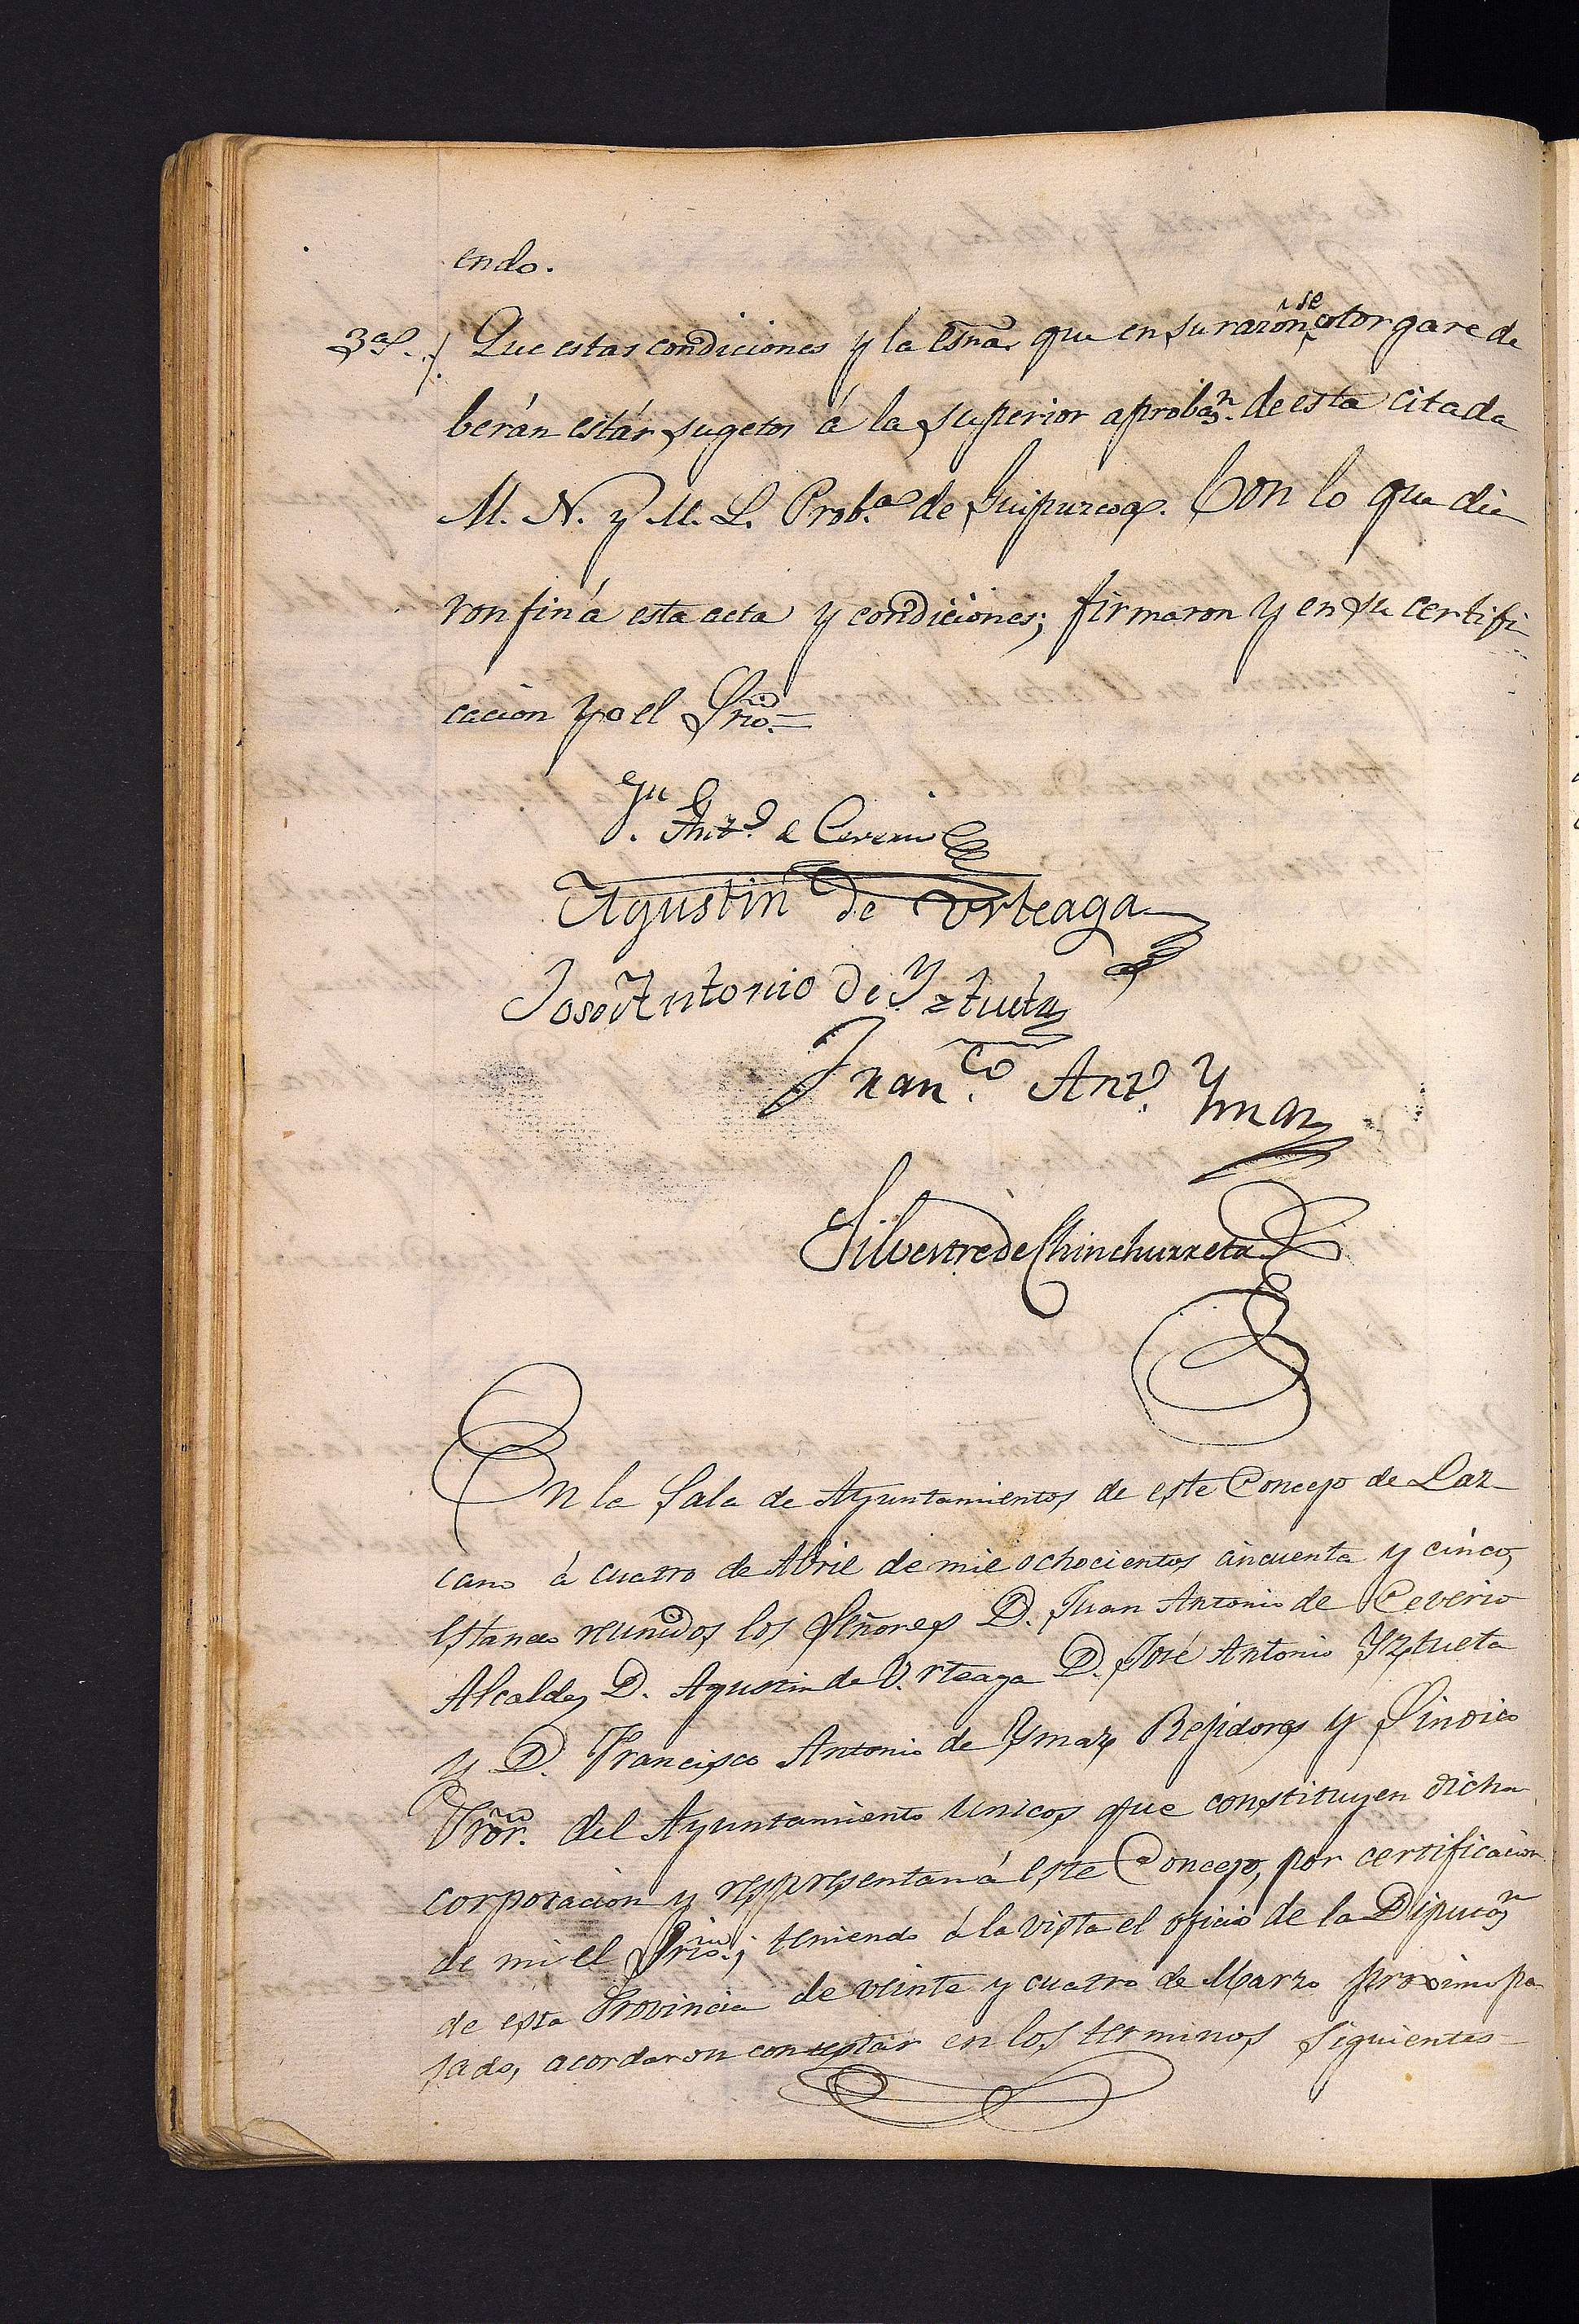 endo.
3ª. Que estas condiciones y la esñra. que en su razón se otorgare de
berán estár sugetos á la superior aprobaⁿ. de esta citada
M. N. y M. L. Prob.ª de Guipuzcoa. Con lo que die
ron fin á esta acta y condiciones; firmaron y en su certifi
cacion yo el Srio.=
Jn. Antº. de Ceverio
Agustin de Urteaga
José Antonio de Yztueta
Fran.co Antº. Ymaz
Silvestre de Chinchurreta
En la Sala de Ayuntamientos de este Concejo de Laz-
cano á cuatro de Abril de mil ochocientos cincuenta y cinco,
estando reunidos los Señores D. Juan Antonio de Ceverio
Alcalde, D. Agustin de Urteaga D. José Antonio Yztueta
y D. Francisco Antonio de Ymaz Rejidores y Sindico
Pror. del Ayuntamiento unicos que constituyen dicha
corporacion y representan á este Concejo, por certificacion
de mi el Srio.; teniendo á la vista el oficio de la Diputaⁿ
de esta Provincia de veinte y cuatro de Marzo proximo pa
sado, acordaron contestár en los terminos siguientes=